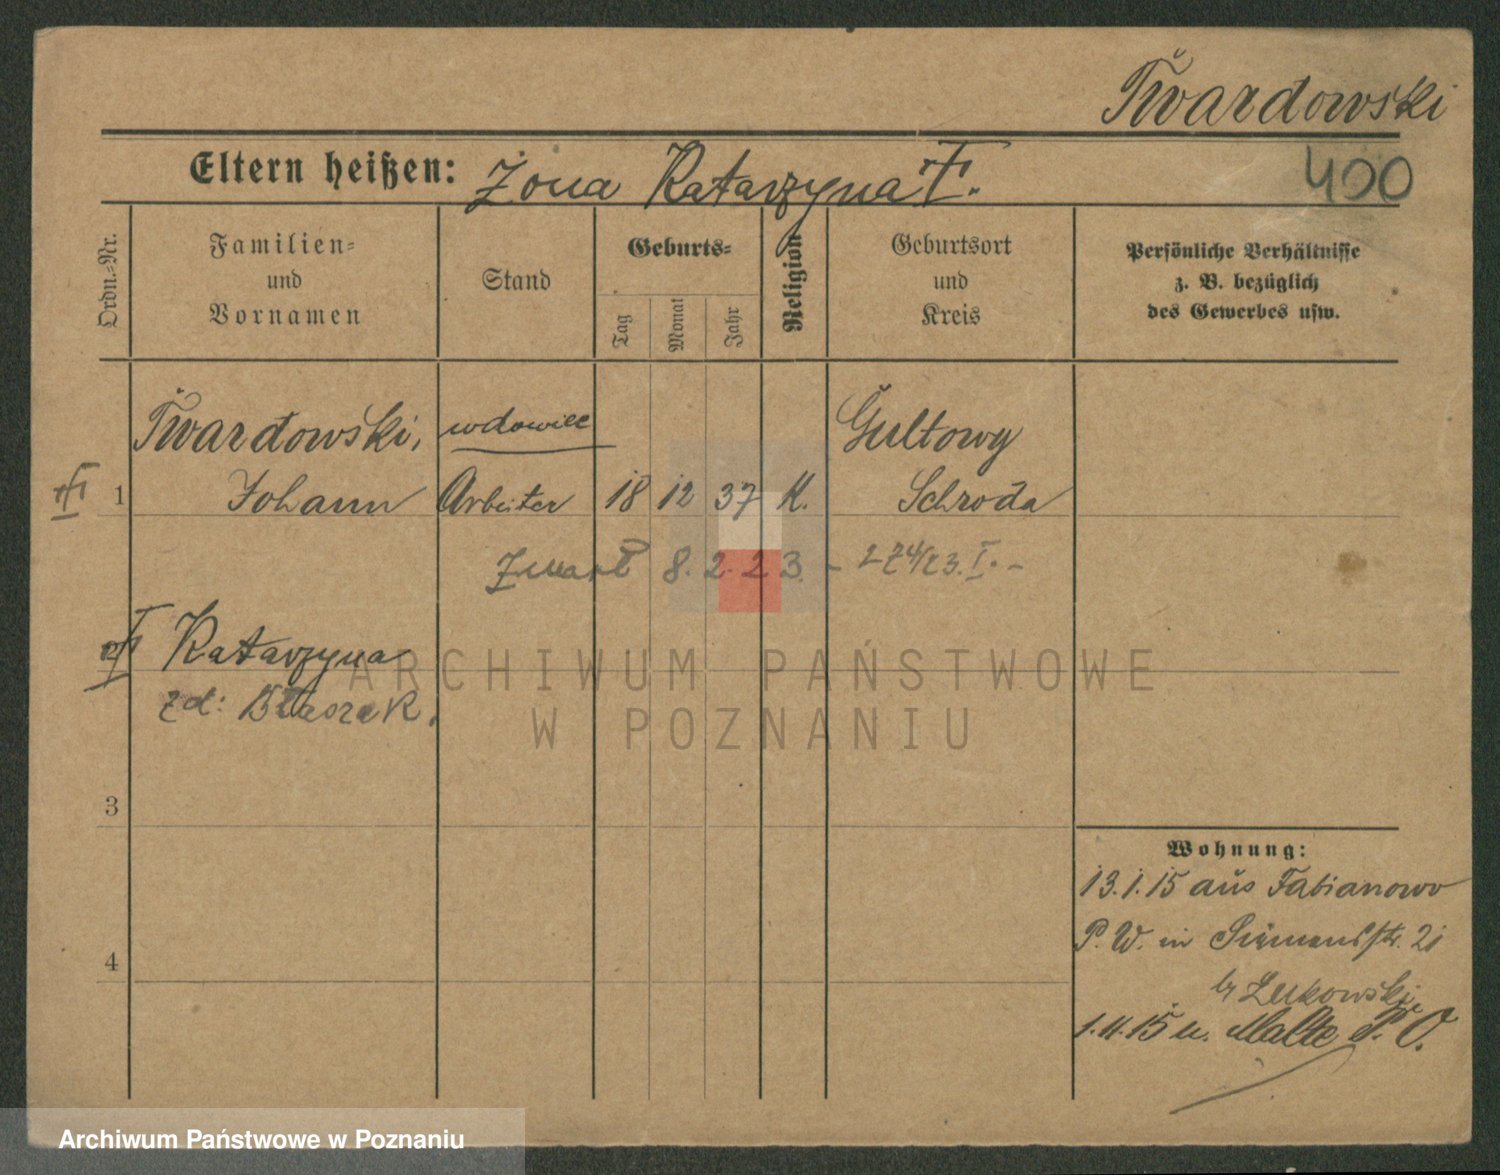 Twardowski
Eltern heißen: Żona Katarzyna
400
Ordn.-Nr.
Familien-
und
Vornamen
Stand
Geburts-
Tag
Monat
Jahr
Religion
Geburtsort
und
Kreis
Persönliche Verhältnisse
z. B. bezüglich
des Gewerbes usw.
Twardowski, wdowiec Gultowy
1 Johann Arbeiter 18 12 37 K. Schroda
Zmarł 8. 2. 23.
2 Katarzyna
zd: Błaszak.
3
4
Wohnung:
13.1.15 aus Fabianowo
P. W. in Siemensstr. 21
b/ Żukowski
Malte P. O.
ARCHIWUM PAŃSTWOWE
W POZNANIU
Archiwum Państwowe w Poznaniu